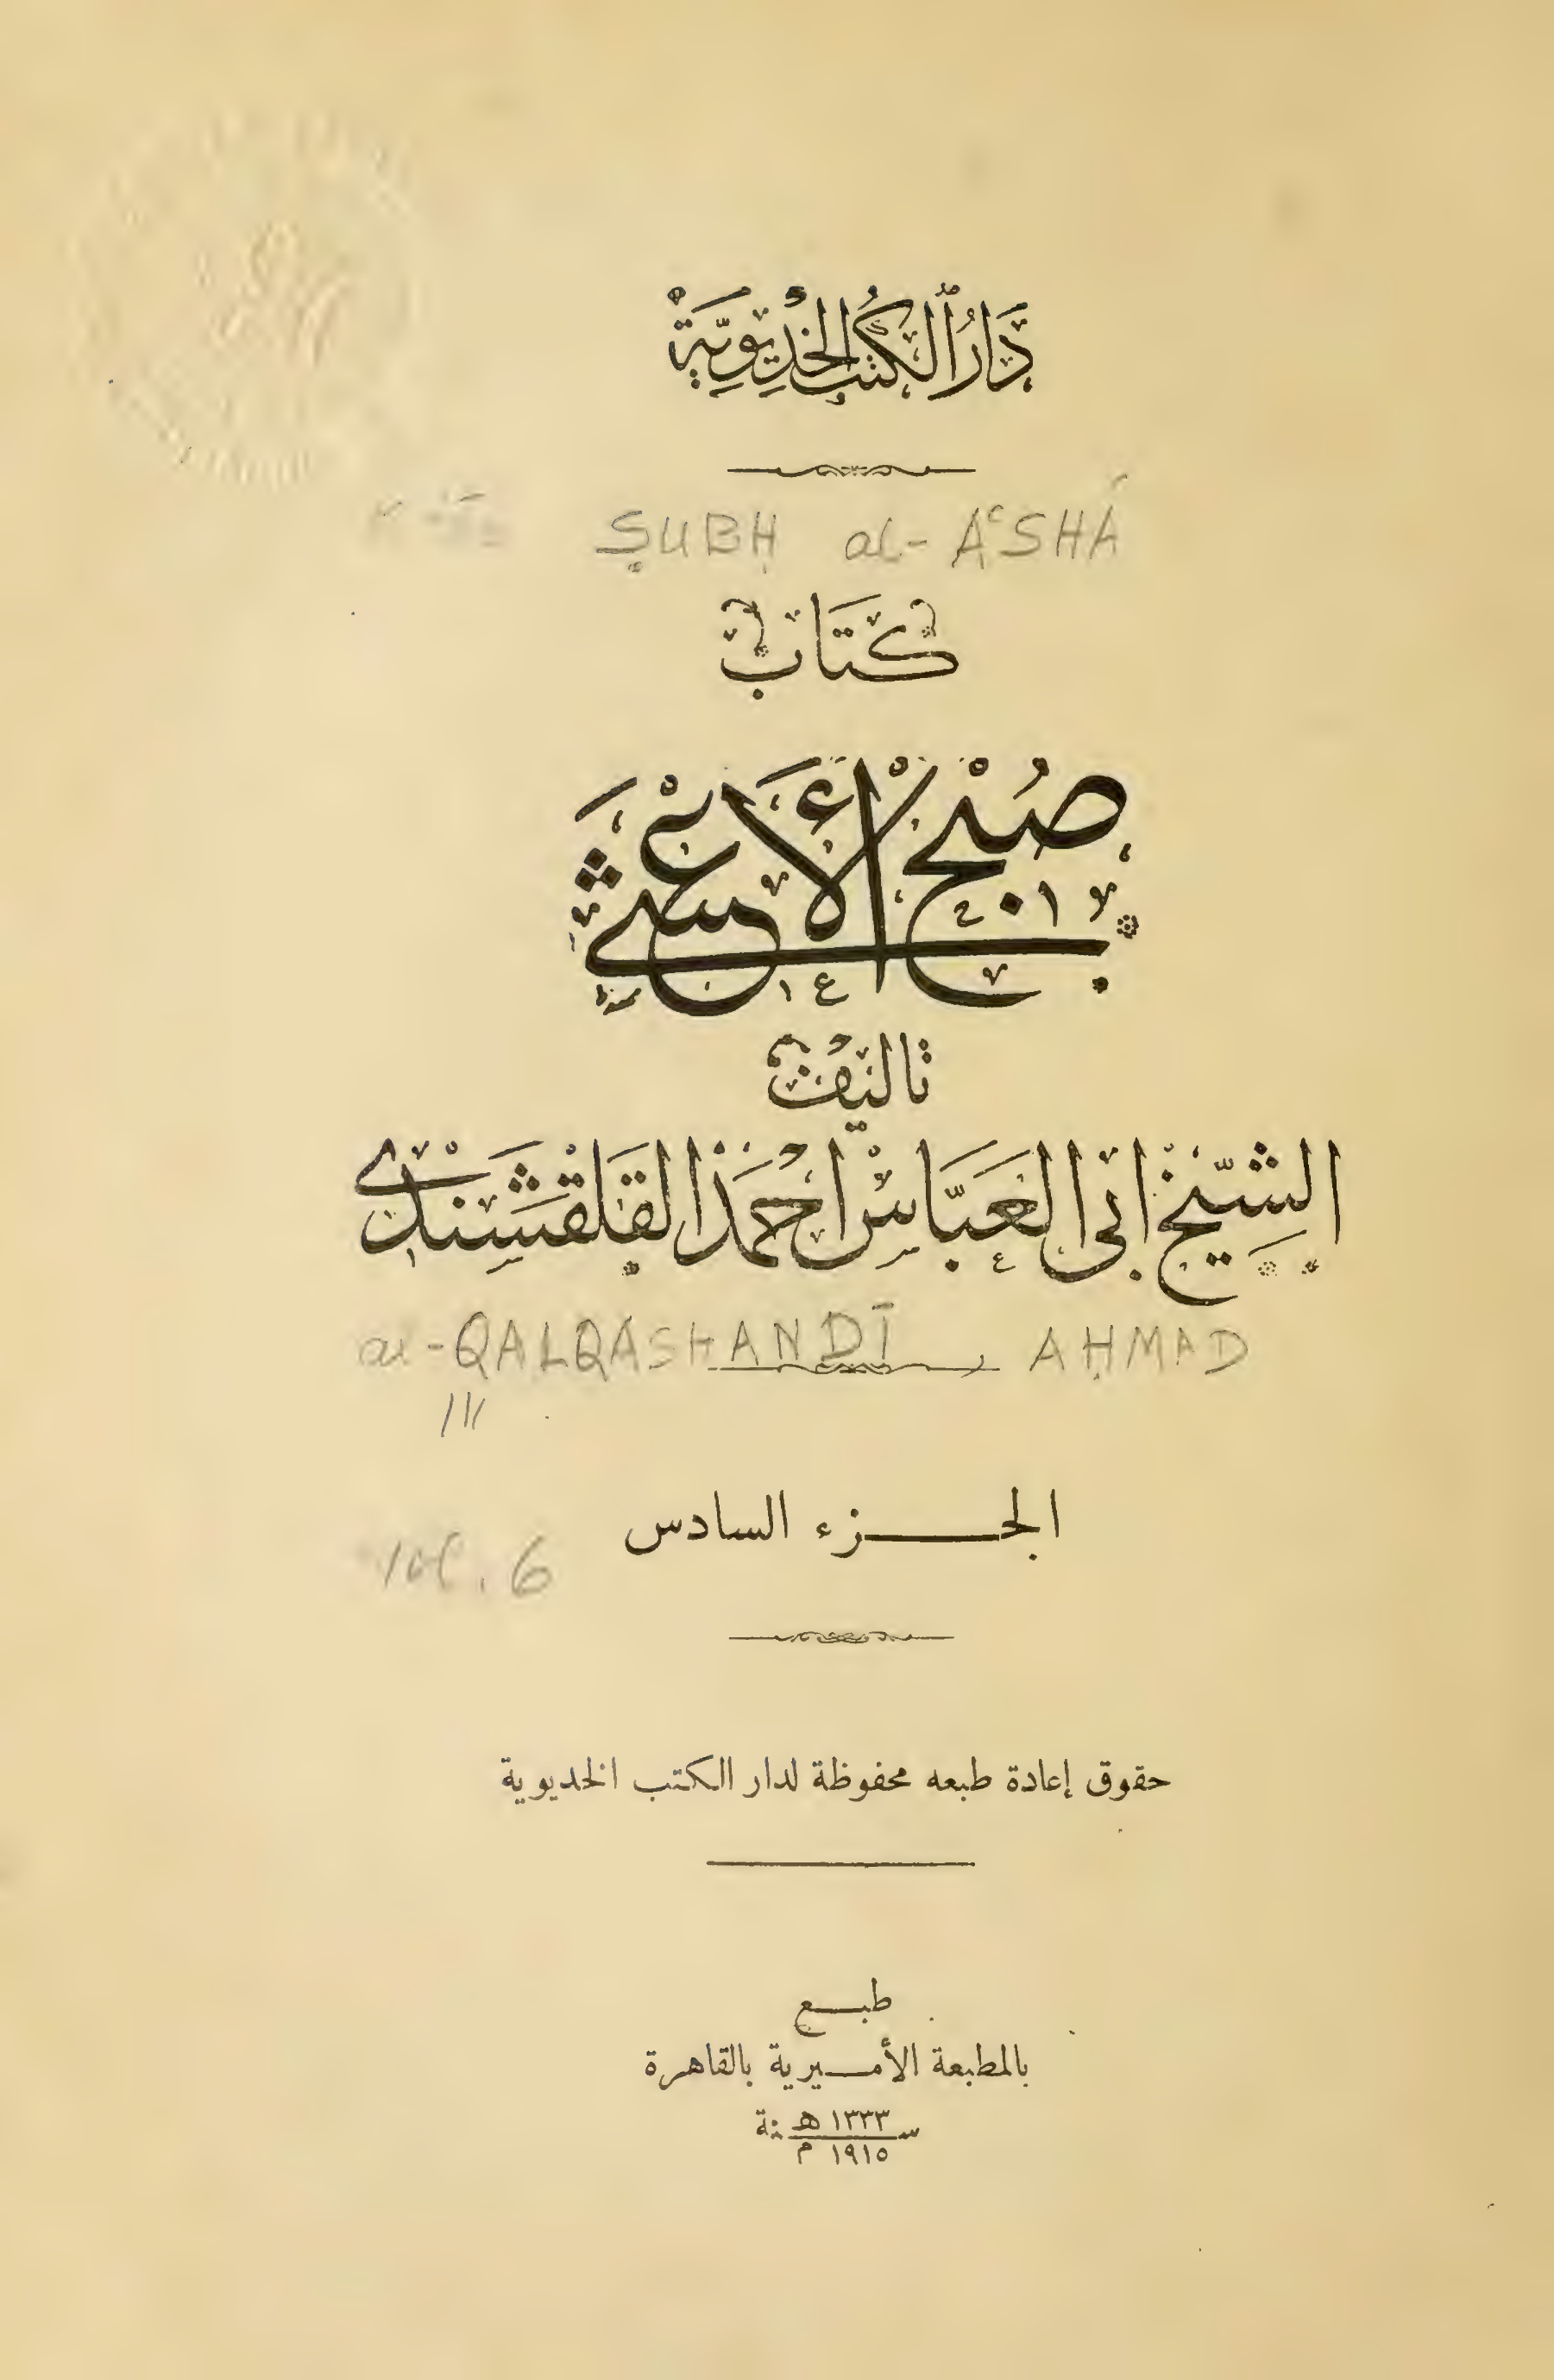 دَارُ ٱلكُتُبِ الخِدِيْوِيَّةْ
ṢUBḤ al-AʿSHÁ
كتَاب
صُبْحُ الأَعْشَىٰ
تاليف
الشّيْخ ابى العَبَّاسْ احْمَد القَلقَشَنْدى
al-QALQASHANDĪ AḤMAD
الجــزء السادس
vol. 6
حقوق إعادة طبعه محفوظة لدار الكتب الخديوية
طبــع
بالمطبعة الأمــيرية بالقاهرة
ســنة ١٣٣٣ هـ
١٩١٥ م